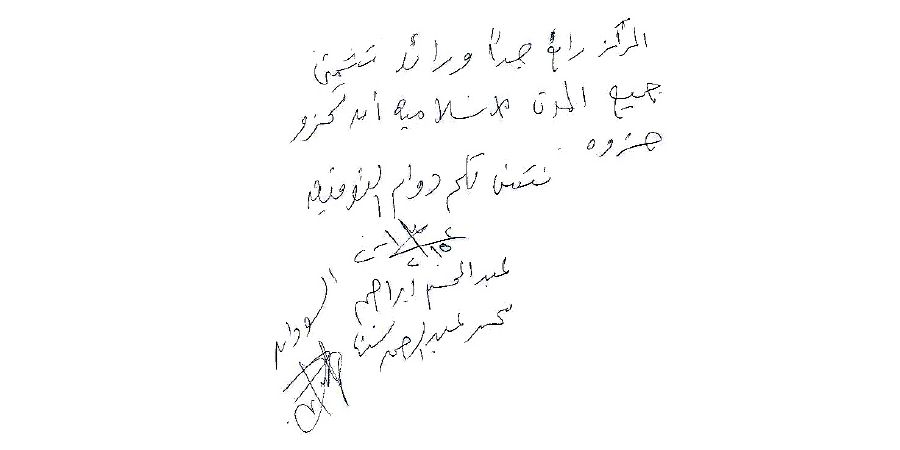 المركز رائع جداً ورائد نتمنى
جميع المدن الاسلامية أن تحزو
حزوه نتمنى لكم دوام التوفيق
عبدالمحسن ابراهيم السودان
محمد عبدالرحمن